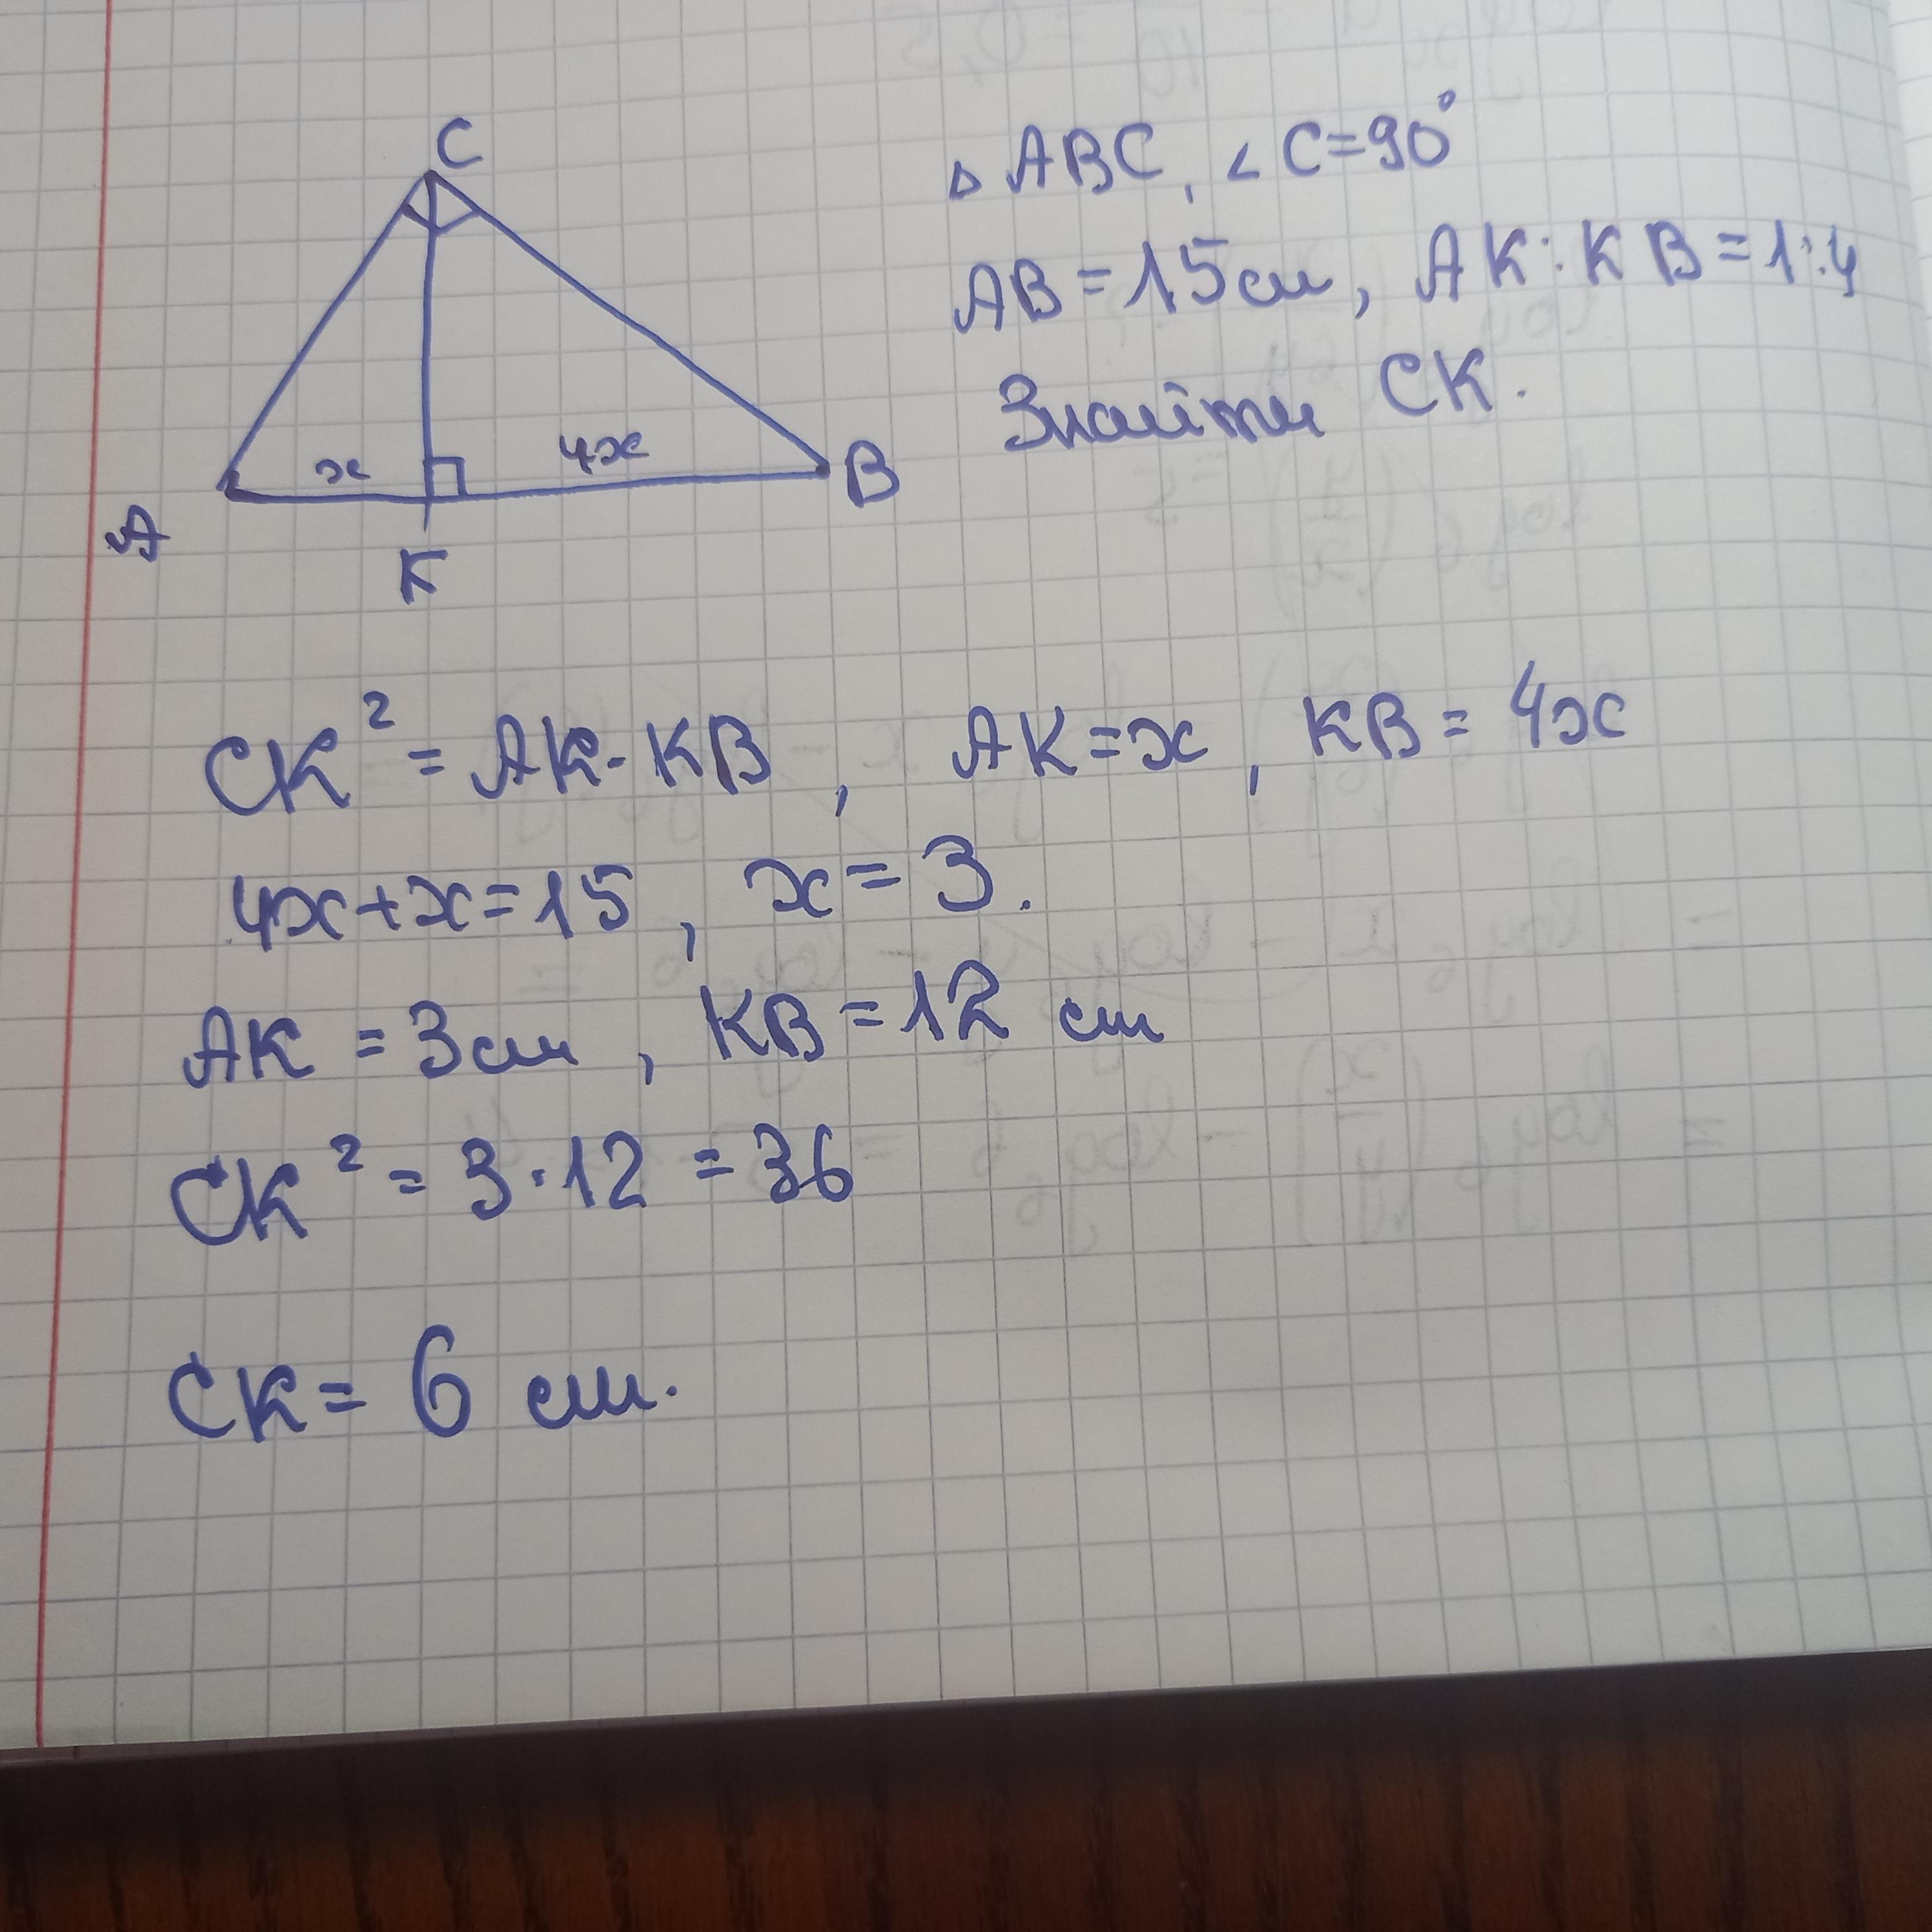 C
△ ABC, ∠C=90°
AB = 15см, AK:KB=1:4
Знайти CK.
x 4x
A B
K
CK² = AK·KB, AK=x, KB=4x
4x+x=15, x=3.
AK = 3см, KB=12 см
CK² = 3·12 = 36
CK = 6 см.